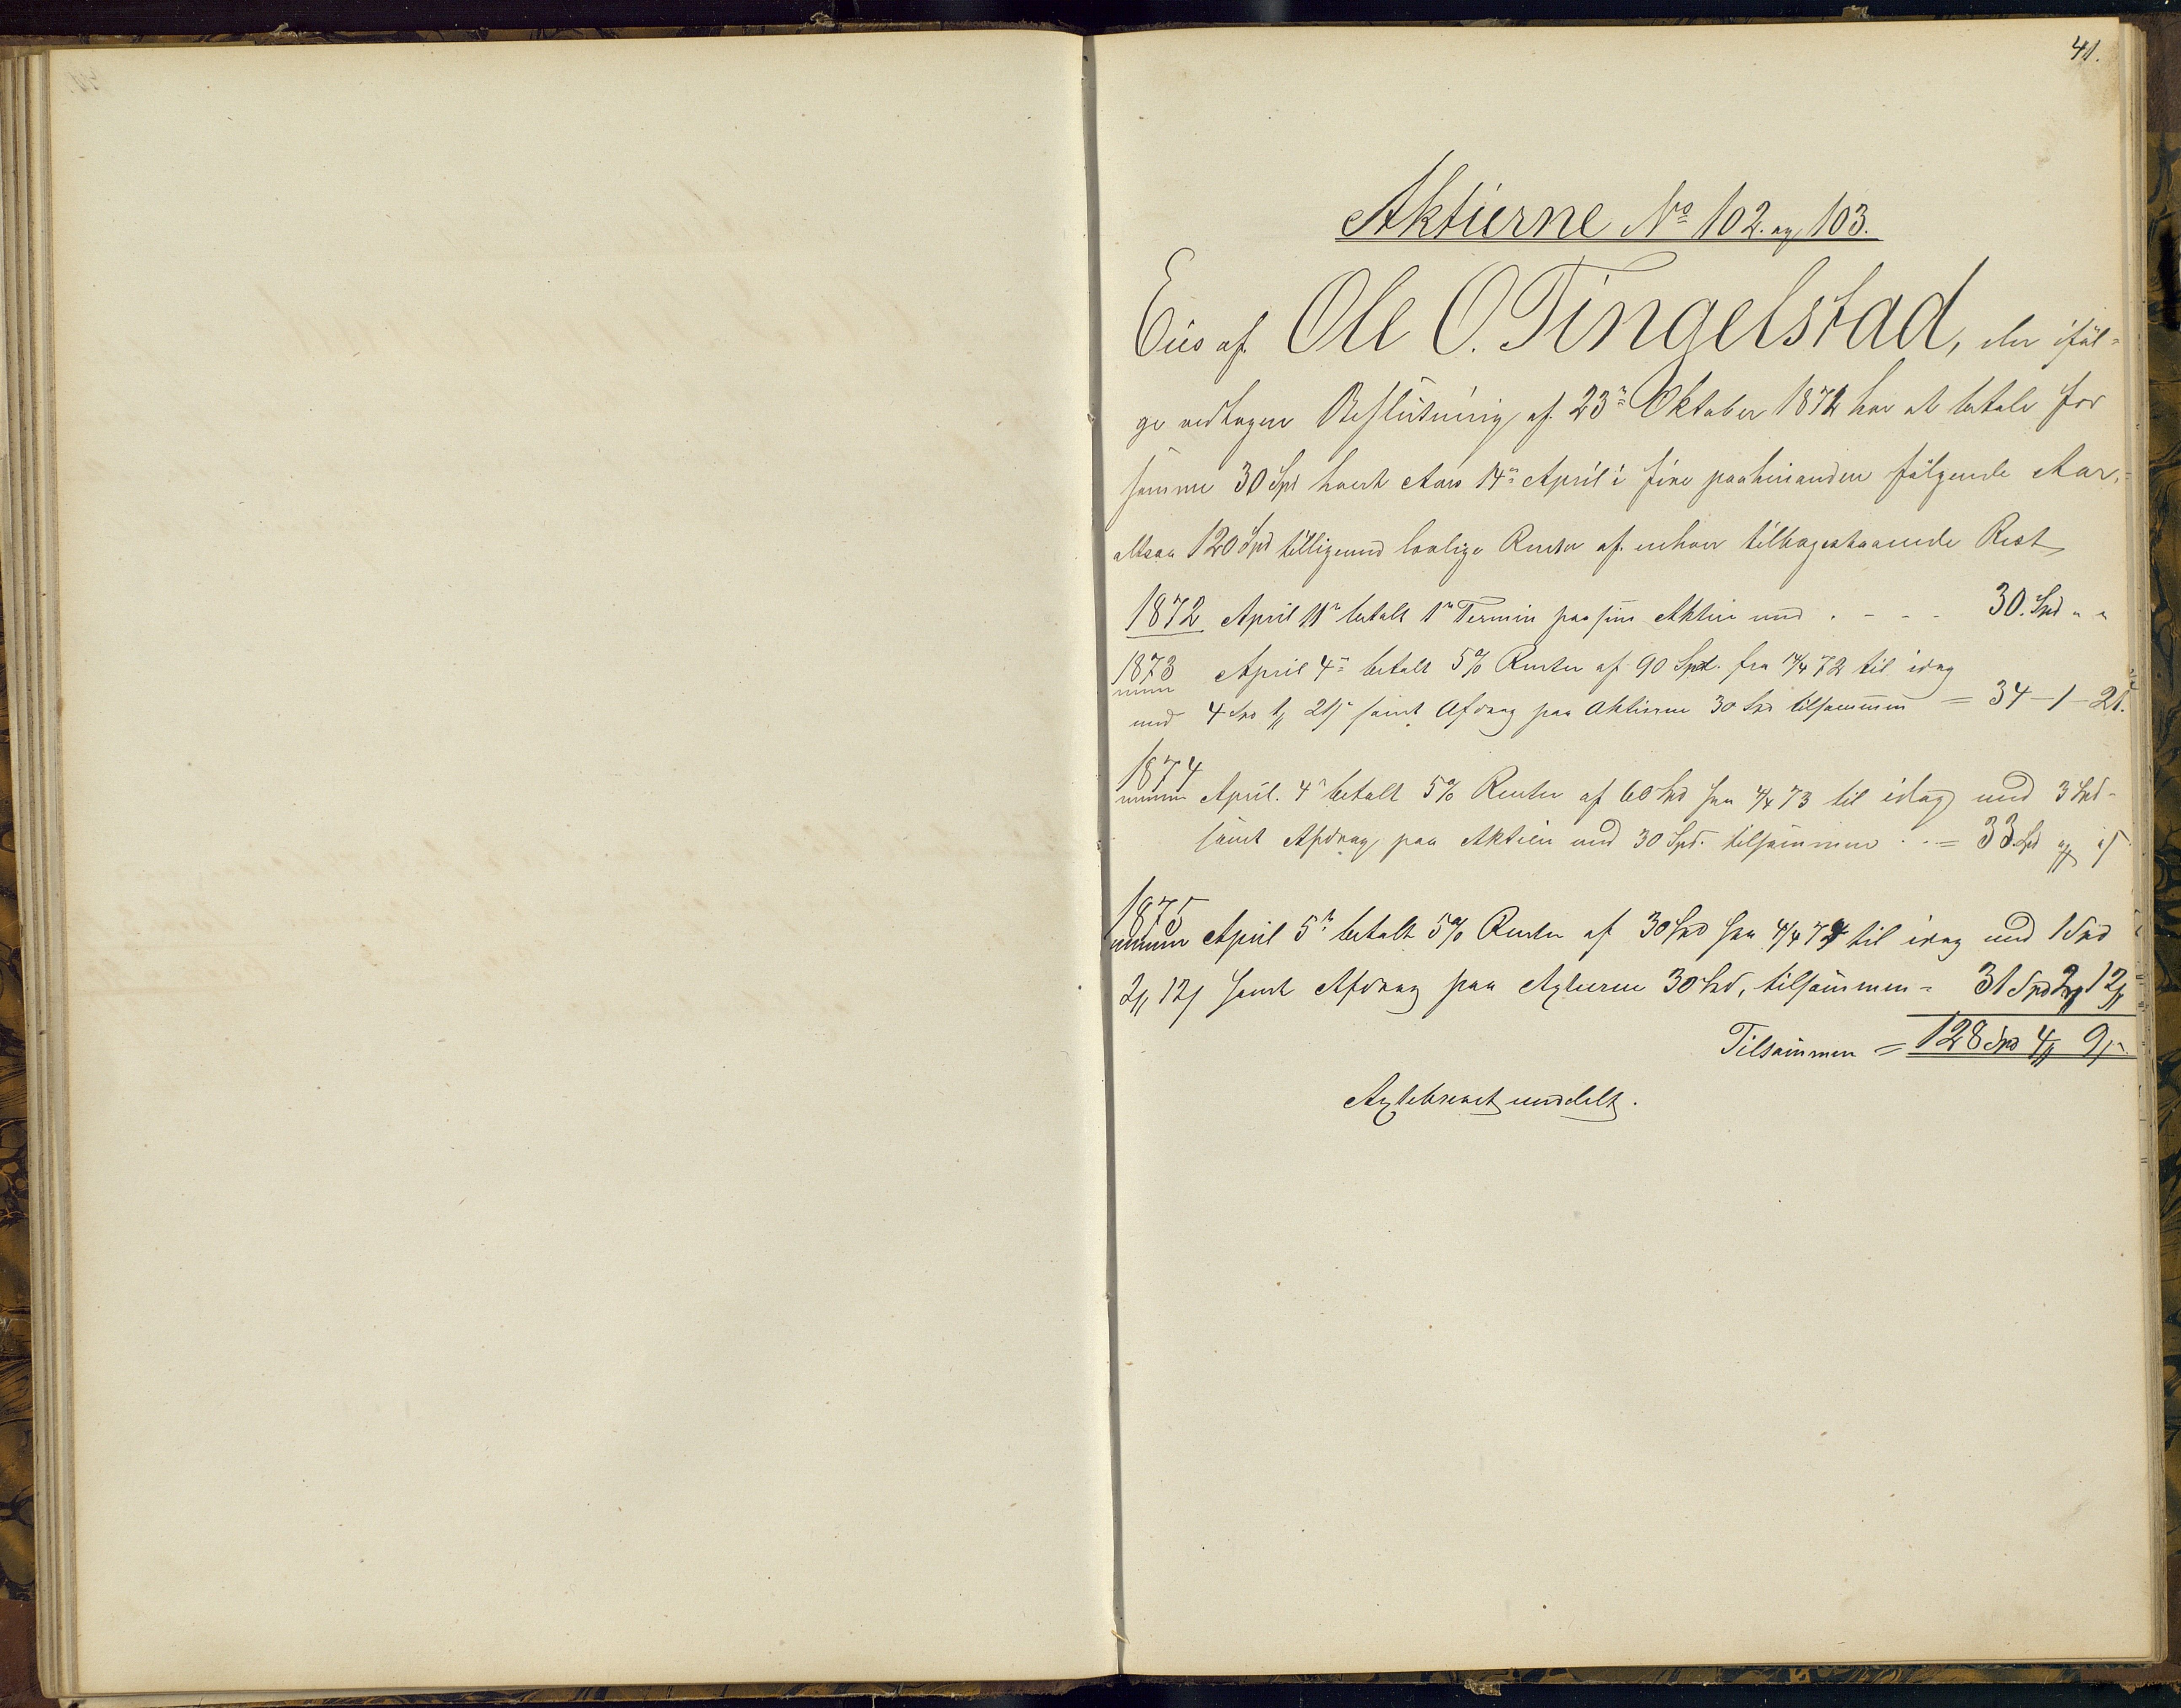 41.
Aktierne No 102. og 103.
Eies af Ole O. Tingelstad, der iføl-
ge vedtagen Beslutning af 23de Oktober 1871 har at betale for
samme 30 Spd hvert Aars 14de April i fire paahinanden følgende Aar,
altsaa 120 Spd tilligemed lovlige Renter af enhver tilbagestaaende Rest
1872 April 11te betalt 1te Termin paa sine Aktier med . - - - 30. Spd " "
1873 April 4de betalt 5% Renter af 90 Spd. fra 14/4 72 til idag
med 4 Spd 1 21 samt Afdrag paa Aktierne 30 Spd tilsammen = 34-1-21.
1874 April. 4de betalt 5% Renter af 60 Spd fra 4/4 73 til idag med 3 Spd-
samt Afdrag paa Aktien med 30 Spd. tilsammen . . = 33 Spd " "
1875 April 5te betalt 5% Renter af 30 Spd fra 4/4 74 til idag med 1 Spd
2 12 samt Afdrag paa Agtierne 30 Spd, tilsammen = 31 Spd 2 12
Tilsammen = 128 Spd 4 9
Agtiebrevet uddelt.